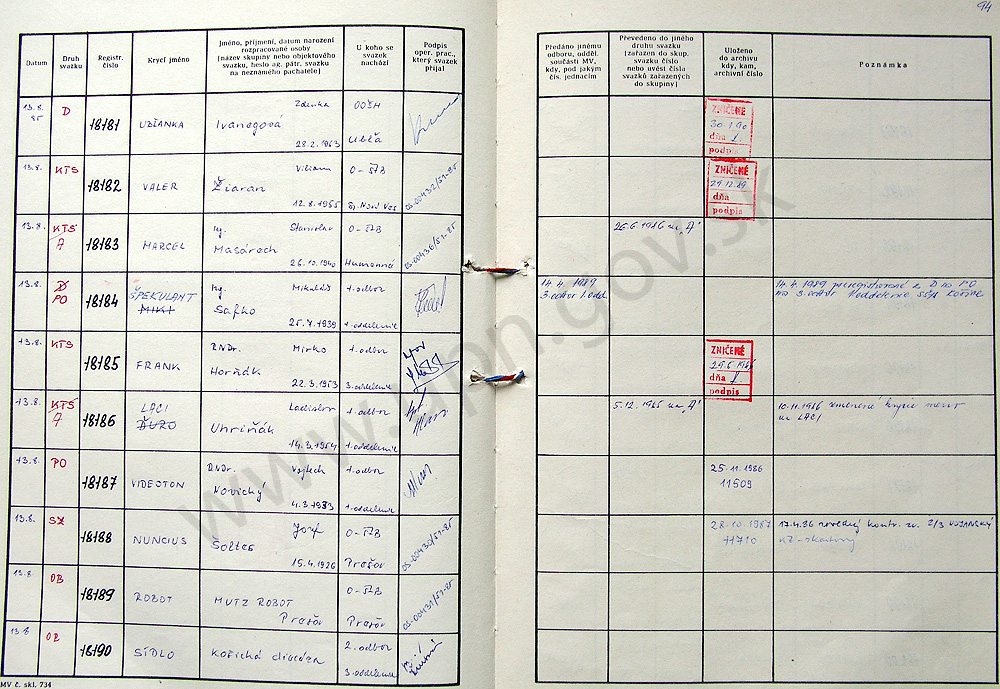 94
Datum
Druh
svazku
Registr.
číslo
Krycí jméno
Jméno, příjmení, datum narození
rozpracované osoby
[název skupiny nebo objektového
svazku, heslo ag. pátr. svazku
na neznámého pachatele]
U koho se
svazek
nachází
Podpis
oper. prac.,
který svazek
přijal
Předáno jinému
odboru, odděl.
součásti MV,
kdy, pod jakým
čís. jednacím
Převedeno do jiného
druhu svazku
[zařazen do skup.
svazku číslo
nebo uvést čísla
svazků zařazených
do skupiny]
Uloženo
do archivu
kdy, kam,
archivní číslo
Poznámka
13.8.
85
D
18181
UBĽANKA
Zdenka
Ivanegová
28.2.1963
OOŠH
Ubľa
ZNIČENÉ
dňa
podpis
13.8.
KTS
18182
VALER
Viliam
Žiaran
12.8.1955
O-ŠtB
Sp. Nová Ves
OS-00432/51-85
ZNIČENÉ
29.12.89
dňa
podpis
13.8.
KTS
A
18183
MARCEL
Ing.
Stanislav
Masárech
26.10.1940
O-ŠtB
Humenné
OS-00436/51-85
26.6.1986 na "A"
13.8.
D
PO
18184
ŠPEKULANT
MIKI
Ing.
Mikuláš
Safko
25.7.1939
1.odbor
1.oddelenie
14.4.1989
3.odbor 1.odd.
14.4.1989 preregistrované z D na PO
na 3.odbor 1.oddelenie
13.8.
KTS
18185
FRANK
RNDr.
Mirko
Horňák
22.3.1953
1.odbor
3.oddelenie
ZNIČENÉ
dňa
podpis
13.8.
KTS
A
18186
LACI
ĎURO
Ladislav
Uhriňák
14.3.1954
1.odbor
1.oddelenie
5.12.1986 na "A"
10.11.1986 zmenené krycie meno
na LACI
13.8.
PO
18187
VIDEOTON
RNDr.
Vojtech
Novický
4.3.1933
1.odbor
1.oddelenie
25.11.1986
11509
13.8.
SZ
18188
NUNCIUS
Jozef
Šoltes
15.4.1926
O-ŠtB
Prešov
OS-00430/51-85
28.10.1987
11710
13.8.
OB
18189
ROBOT
MUTZ ROBOT
Prešov
O-ŠtB
Prešov
OS-00431/51-85
13.8
OB
18190
SÍDLO
Košická diecéza
2.odbor
3.oddelenie
MV č. skl. 734
www.upn.gov.sk